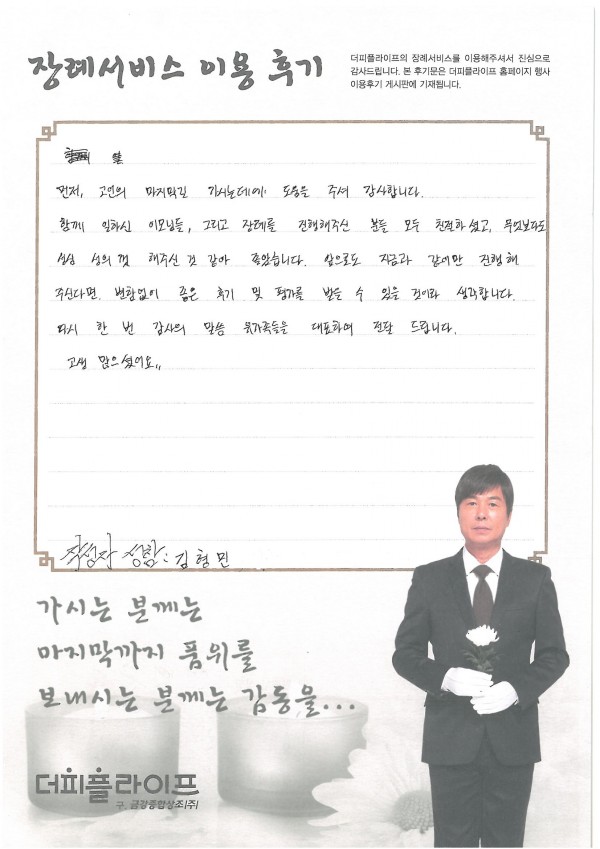 장례서비스 이용 후기
더피플라이프의 장례서비스를 이용해주셔서 진심으로
감사드립니다. 본 후기문은 더피플라이프 홈페이지 행사
이용후기 게시판에 기재됩니다.
먼저, 고인의 마지막길 가시는데에 도움을 주셔 감사합니다.
함께 일하신 이모님들, 그리고 장례를 진행해주신 분들 모두 친절하셨고, 무엇보다도
성심 성의껏 해주신 것 같아 좋았습니다. 앞으로도 지금과 같이만 진행해
주신다면, 변함없이 좋은 후기 및 평가를 받을 수 있을 것이라 생각합니다.
다시 한 번 감사의 말씀 유가족들을 대표하여 전달 드립니다.
고생 많으셨어요,,
작성자 성함: 김형민
가시는 분께는
마지막까지 품위를
보내시는 분께는 감동을...
더피플라이프
구. 금강종합상조(주)